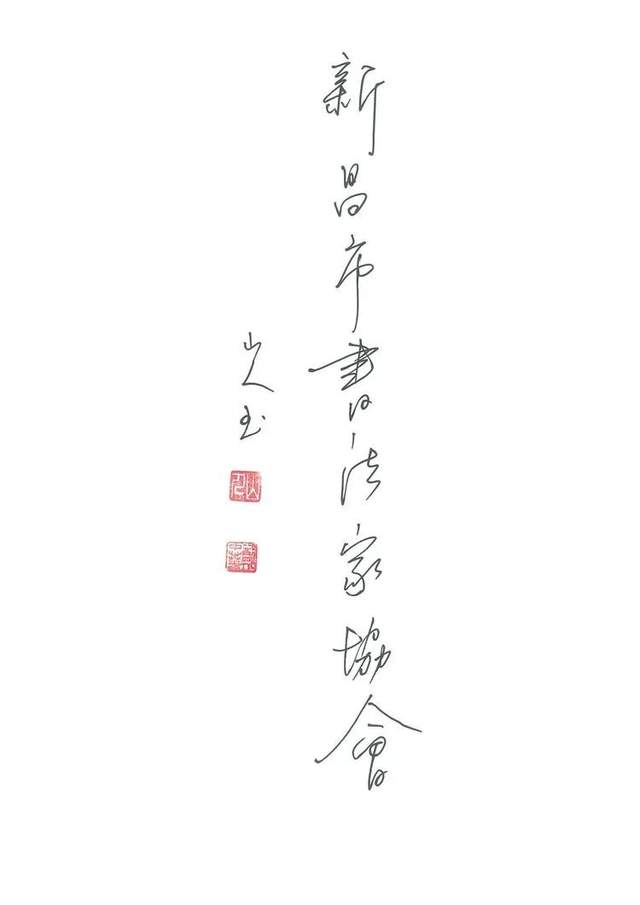 新昌市書法家協會
山人玉